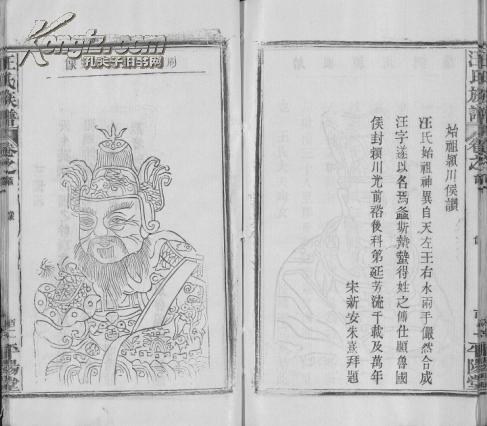 始祖頴川侯讚
汪氏始祖神異自天左王右水兩手儼然合成
汪字遂以名焉螽斯蟄蟄得姓之傳仕顯魯國
侯封頴川光前裕後科第延芳流千載及萬年
宋新安朱熹拜題
汪氏族譜
平陽堂
汪氏族譜
平陽堂
Kongfz.com
孔夫子旧书网